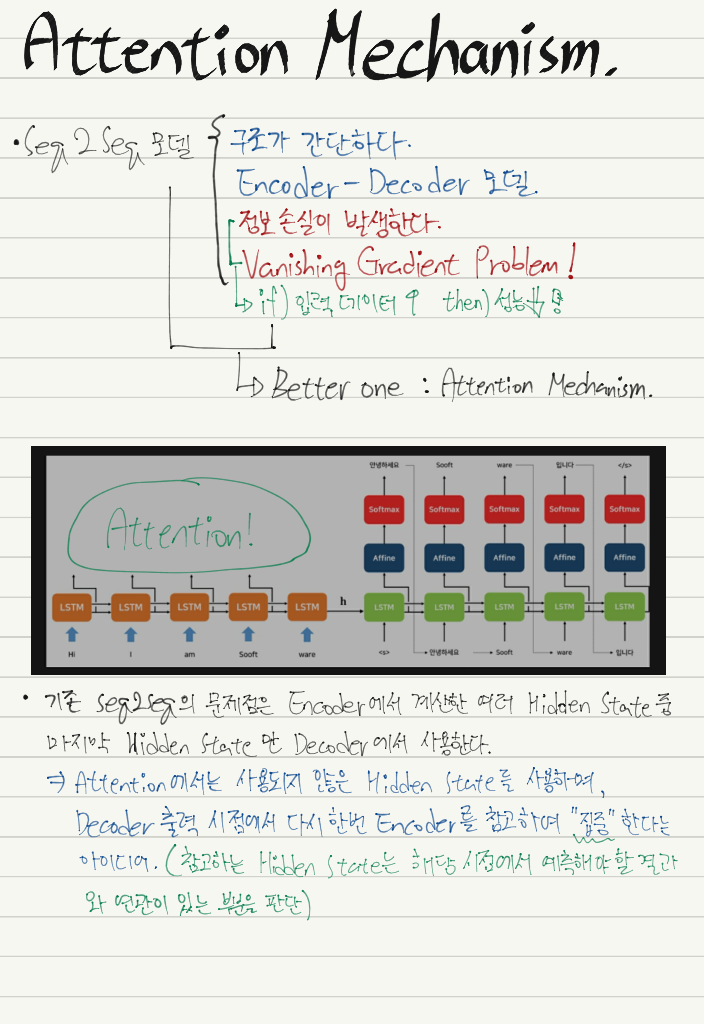 Attention Mechanism.
• Seq2Seq 모델
구조가 간단하다.
Encoder - Decoder 모델.
정보 손실이 발생한다.
Vanishing Gradient Problem!
↳ if) 입력 데이터 ↑ then) 성능 ↓
↳ Better one : Attention Mechanism.
안녕하세요 Sooft ware 입니다 </s>
Softmax Softmax Softmax Softmax Softmax
Attention!
Affine Affine Affine Affine Affine
LSTM LSTM LSTM LSTM LSTM h LSTM LSTM LSTM LSTM LSTM
Hi I am Sooft ware <s> 안녕하세요 Sooft ware 입니다
• 기존 seq2seq의 문제점은 Encoder에서 계산한 여러 Hidden State 중
마지막 Hidden State만 Decoder에서 사용한다.
⇒ Attention에서는 사용되지 않은 Hidden State를 사용하며,
Decoder 출력 시점에서 다시 한번 Encoder를 참고하여 "집중" 한다는
아이디어. (참고하는 Hidden State는 해당 시점에서 예측해야 할 결과
와 연관이 있는 부분을 판단)